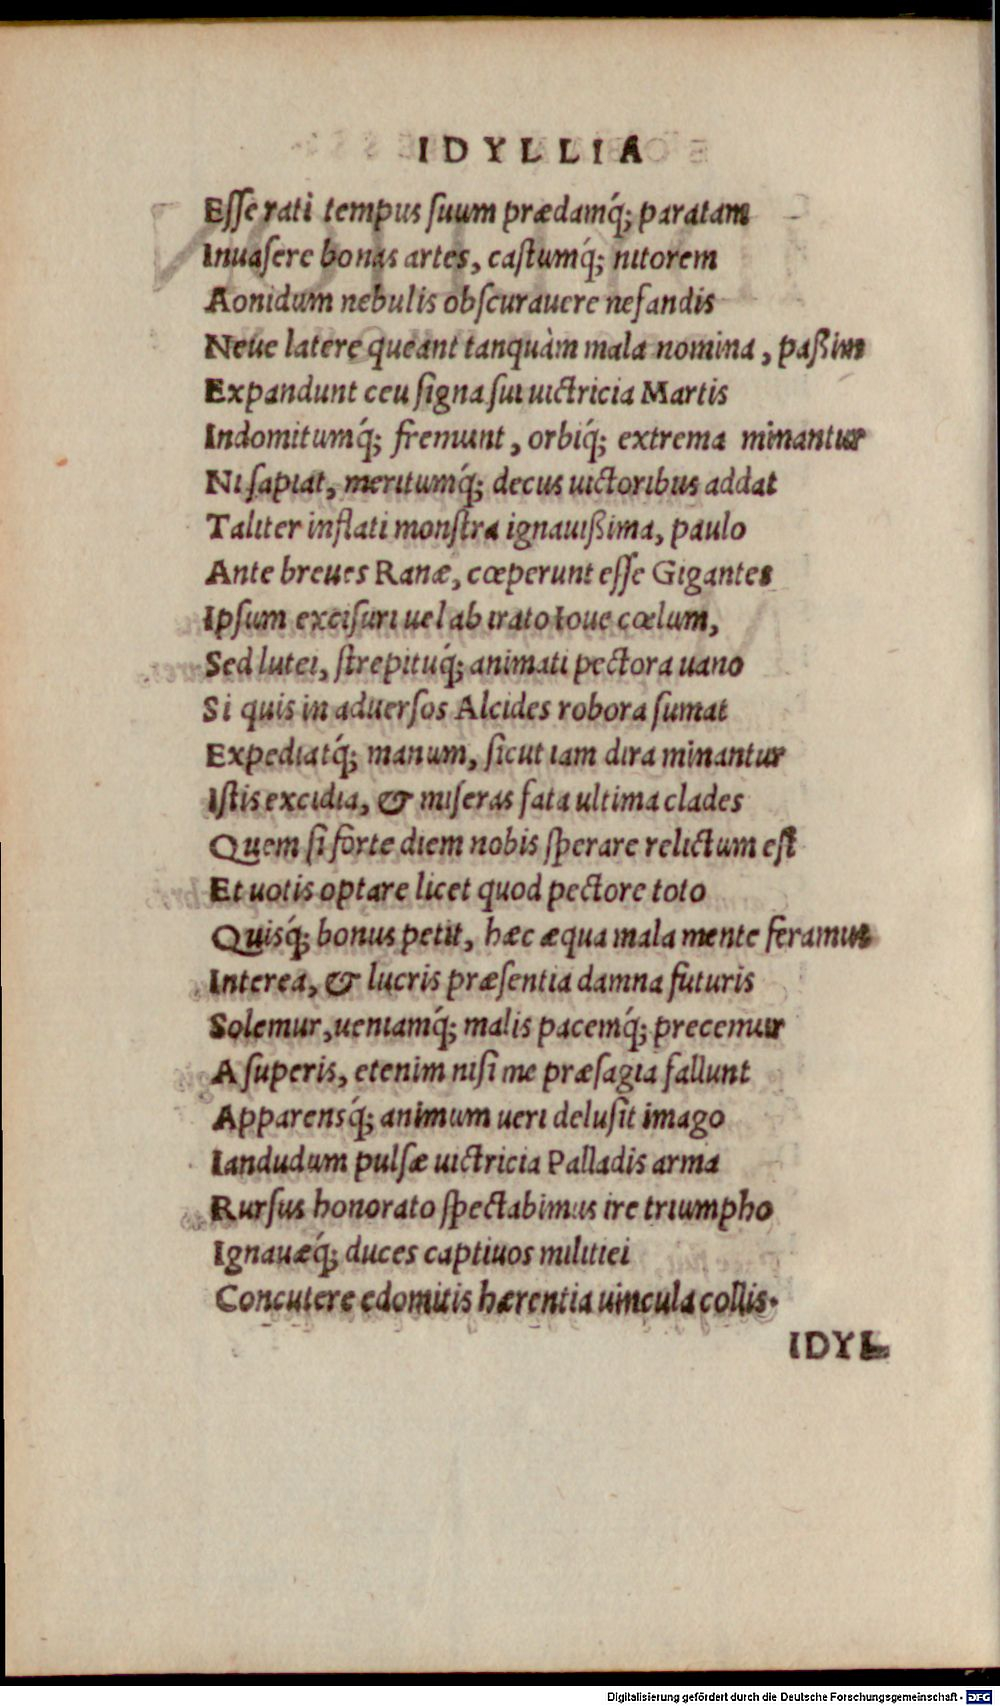 IDYLLIA
Esse rati tempus suum prædamq́; paratam
Inuasere bonas artes, castumq́; nitorem
Aonidum nebulis obscurauere nefandis
Neue latere queant tanquàm mala nomina, paßim
Expandunt ceu signa sui uictricia Martis
Indomitumq́; fremunt, orbiq́; extrema minantur
Ni sapiat, meritumq́; decus uictoribus addat
Taliter inflati monstra ignauißima, paulo
Ante breues Ranæ, cœperunt esse Gigantes
Ipsum excisuri uel ab irato Ioue cœlum,
Sed lutei, strepituq́; animati pectora uano
Si quis in aduersos Alcides robora sumat
Expediatq́; manum, sicut iam dira minantur
Istis excidia, & miseras fata ultima clades
Quem si forte diem nobis sperare relictum est
Et uotis optare licet quod pectore toto
Quisq́; bonus petit, hæc æqua mala mente feramus
Interea, & lucris præsentia damna futuris
Solemur, ueniamq́; malis pacemq́; precemur
A superis, etenim nisi me præsagia fallunt
Apparensq́; animum ueri delusit imago
Iandudum pulsæ uictricia Palladis arma
Rursus honorato spectabimus ire triumpho
Ignauæq́; duces captiuos militiei
Concutere edomitis hærentia uincula collis.
IDYL
Digitalisierung gefördert durch die Deutsche Forschungsgemeinschaft - DFG